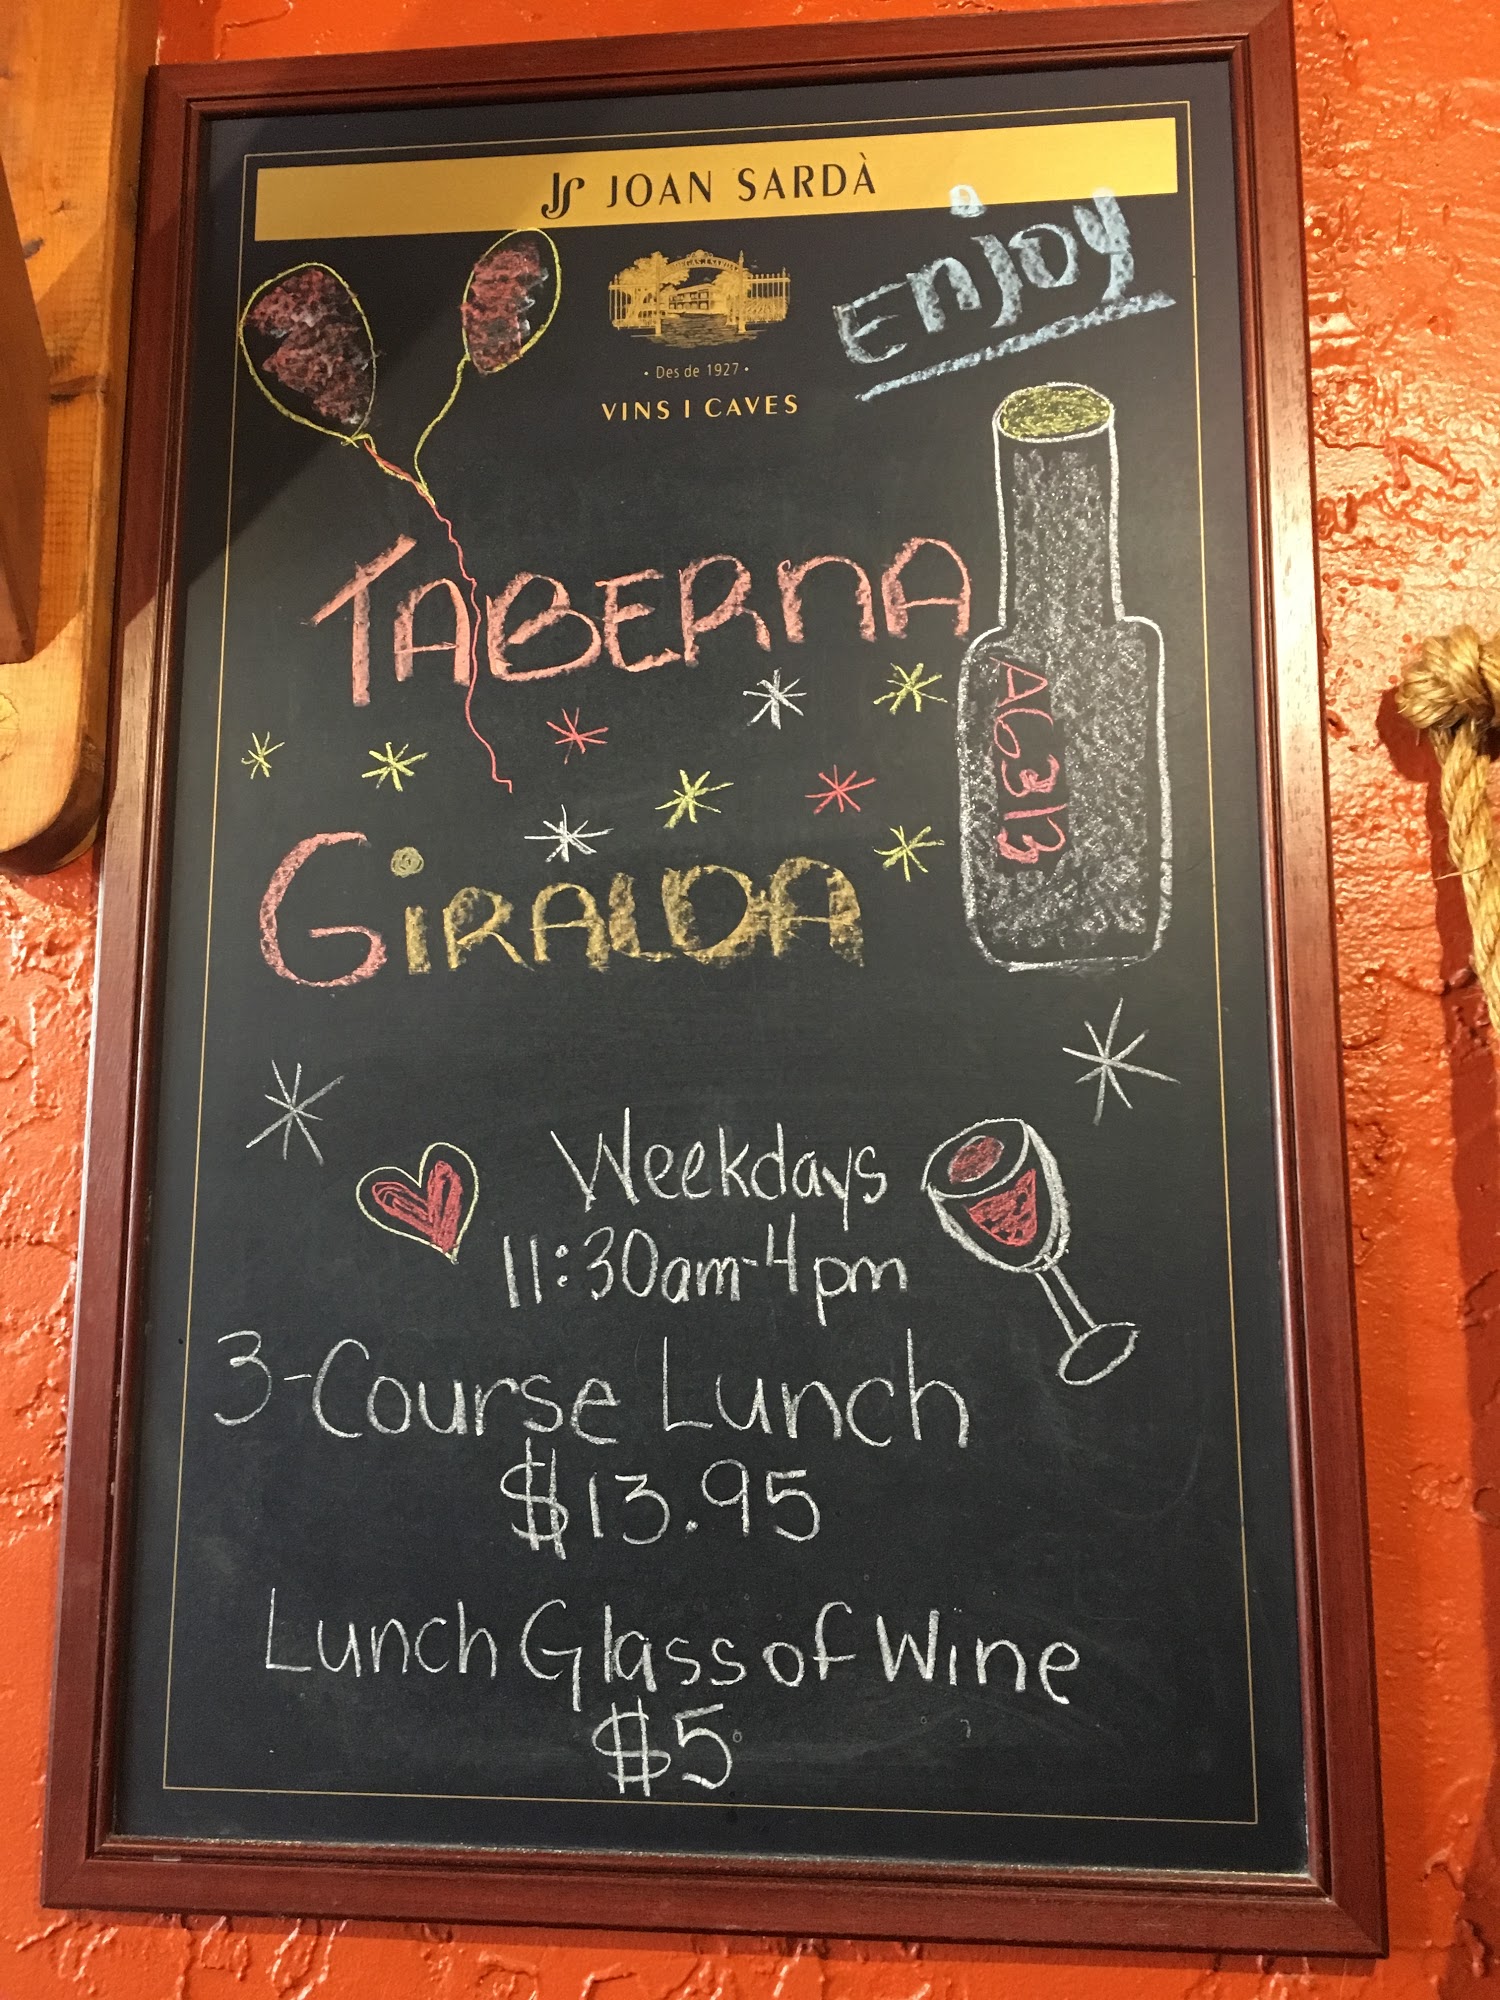 JS JOAN SARDÀ
Enjoy
Des de 1927
VINS I CAVES
TABERNA
GIRALDA
Weekdays
11:30am-4pm
3-Course Lunch
$13.95
Lunch Glass of Wine
$5